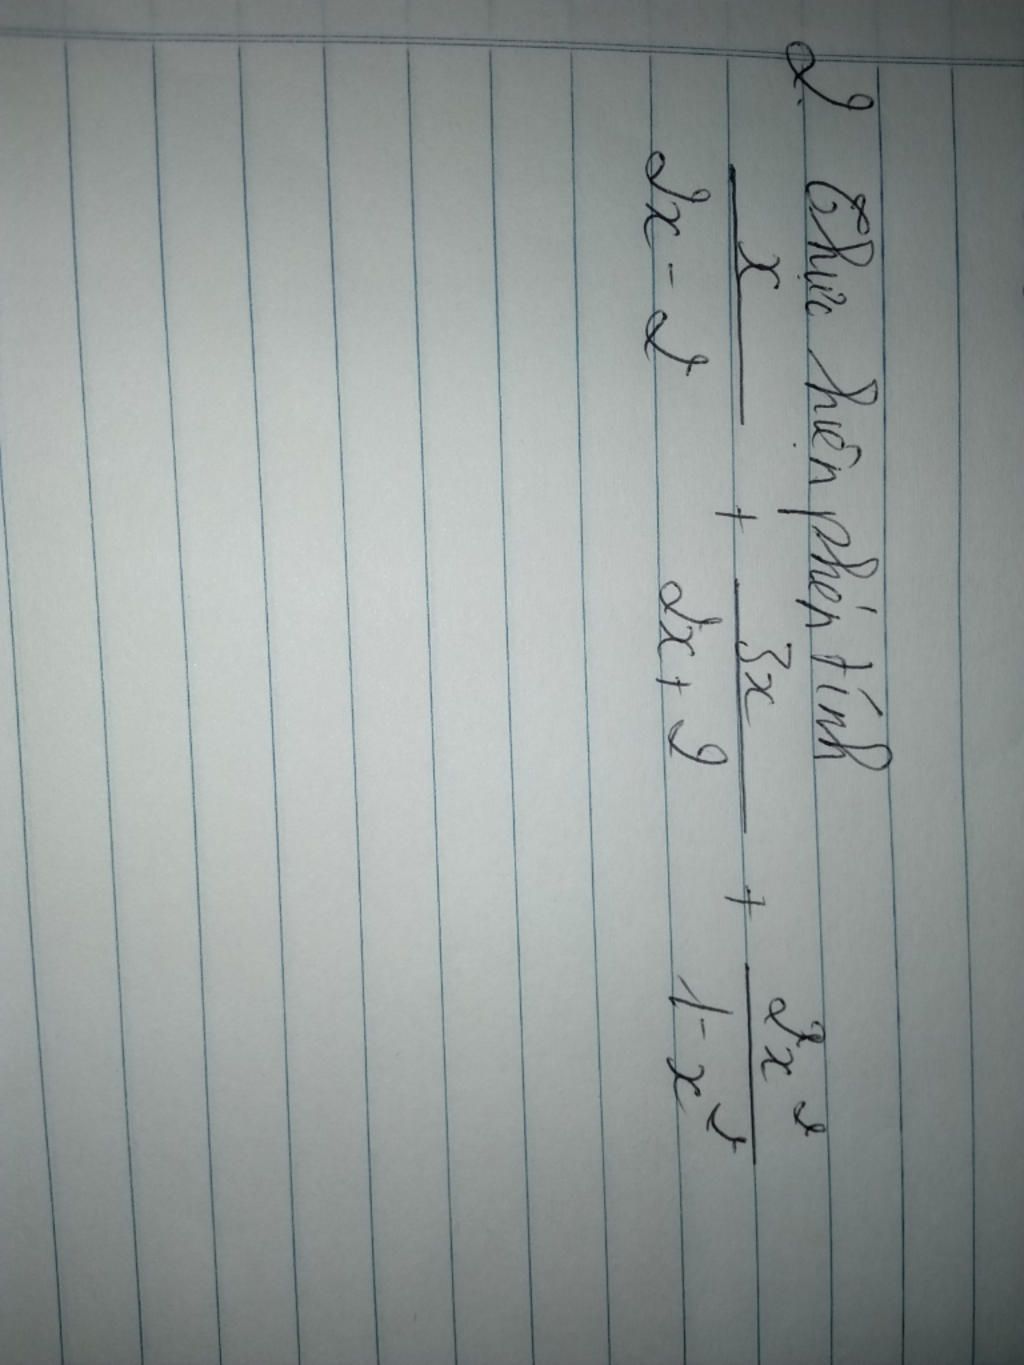 2. Thực hiện phép tính
x/(2x - 2) + 3x/(2x + 2) + 2x²/(1 - x²)